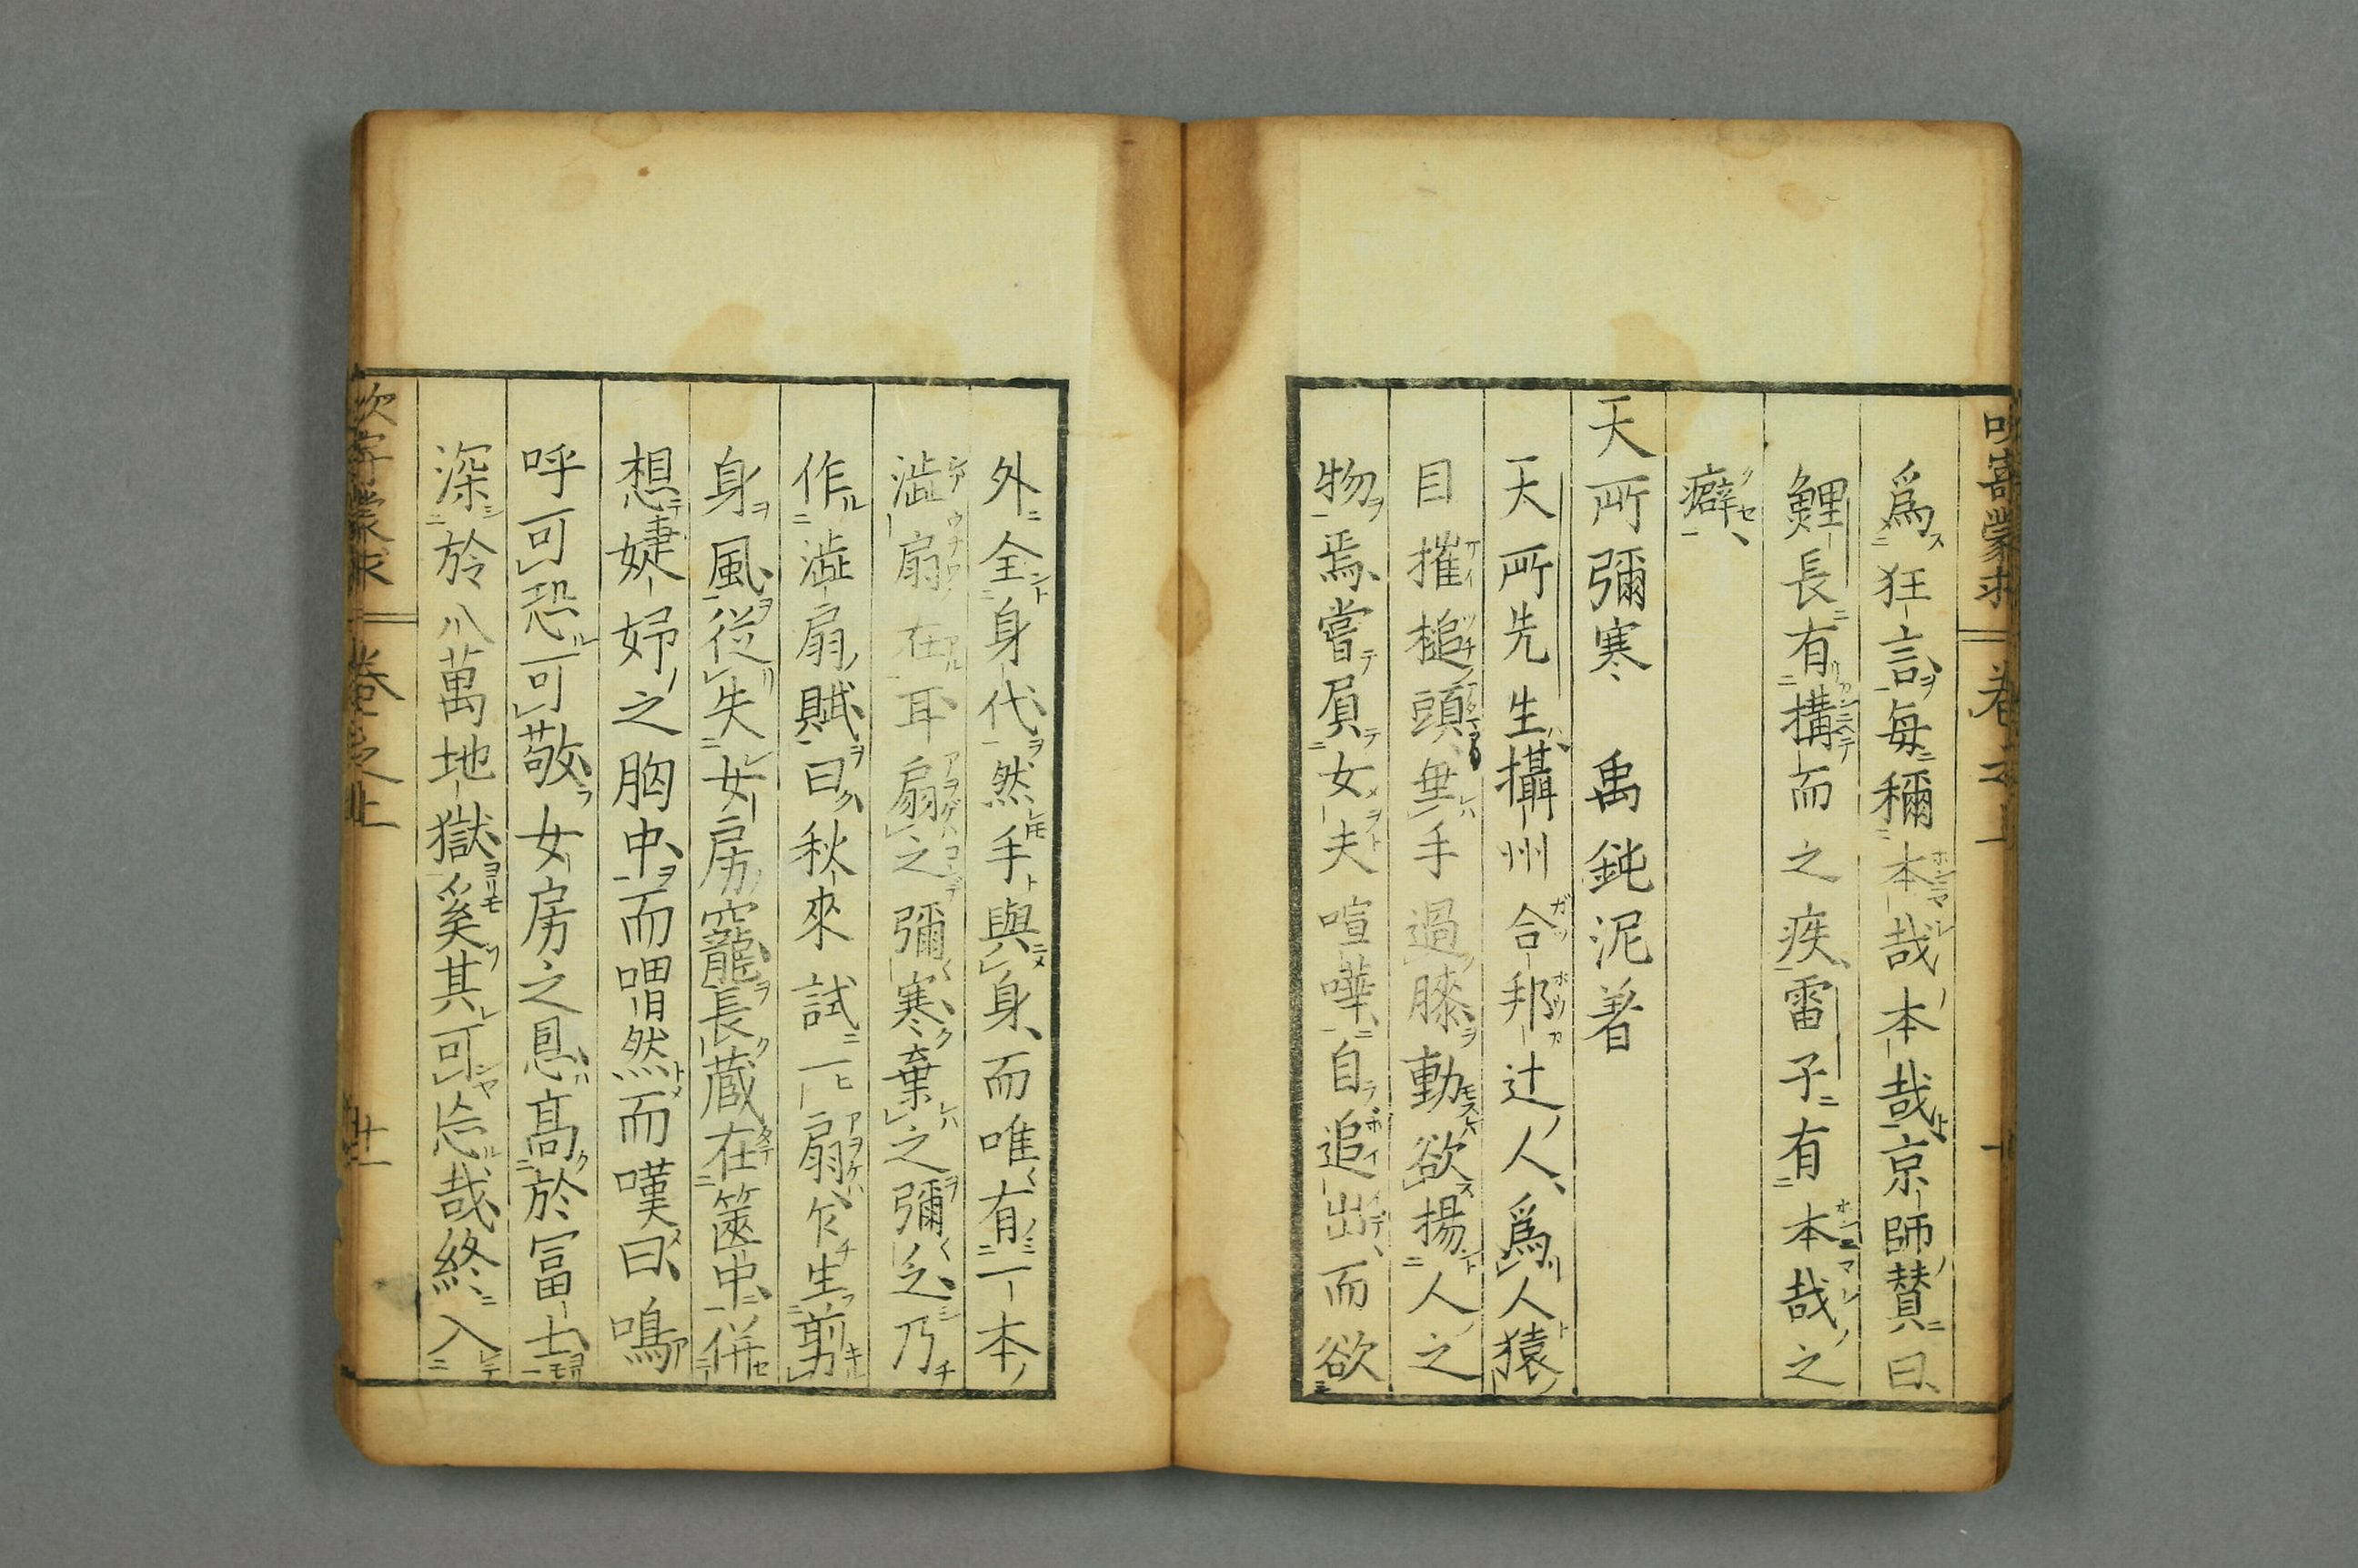 爲狂言毎穪本哉本哉京師賛曰
鯉長有搆而之疾雷子有本哉之
癖
天所彌寒 禹鈍泥著
天所先生攝州合邦辻人爲人猿
目摧槌頭無手過膝動欲揚人之
物焉嘗屓女夫喧嘩自追出而欲
外全身代然手與身而唯有一本
澁扇在耳扇之彌寒棄之彌乞乃
作澁扇賦曰秋來試一扇乍生剪
身風從失女房寵長蔵在篋中併
想婕妤之胸中而喟然而嘆曰鳴
呼可恐可敬女房之息高於冨士
深於八萬地獄奚其可忩哉終入
卷之上